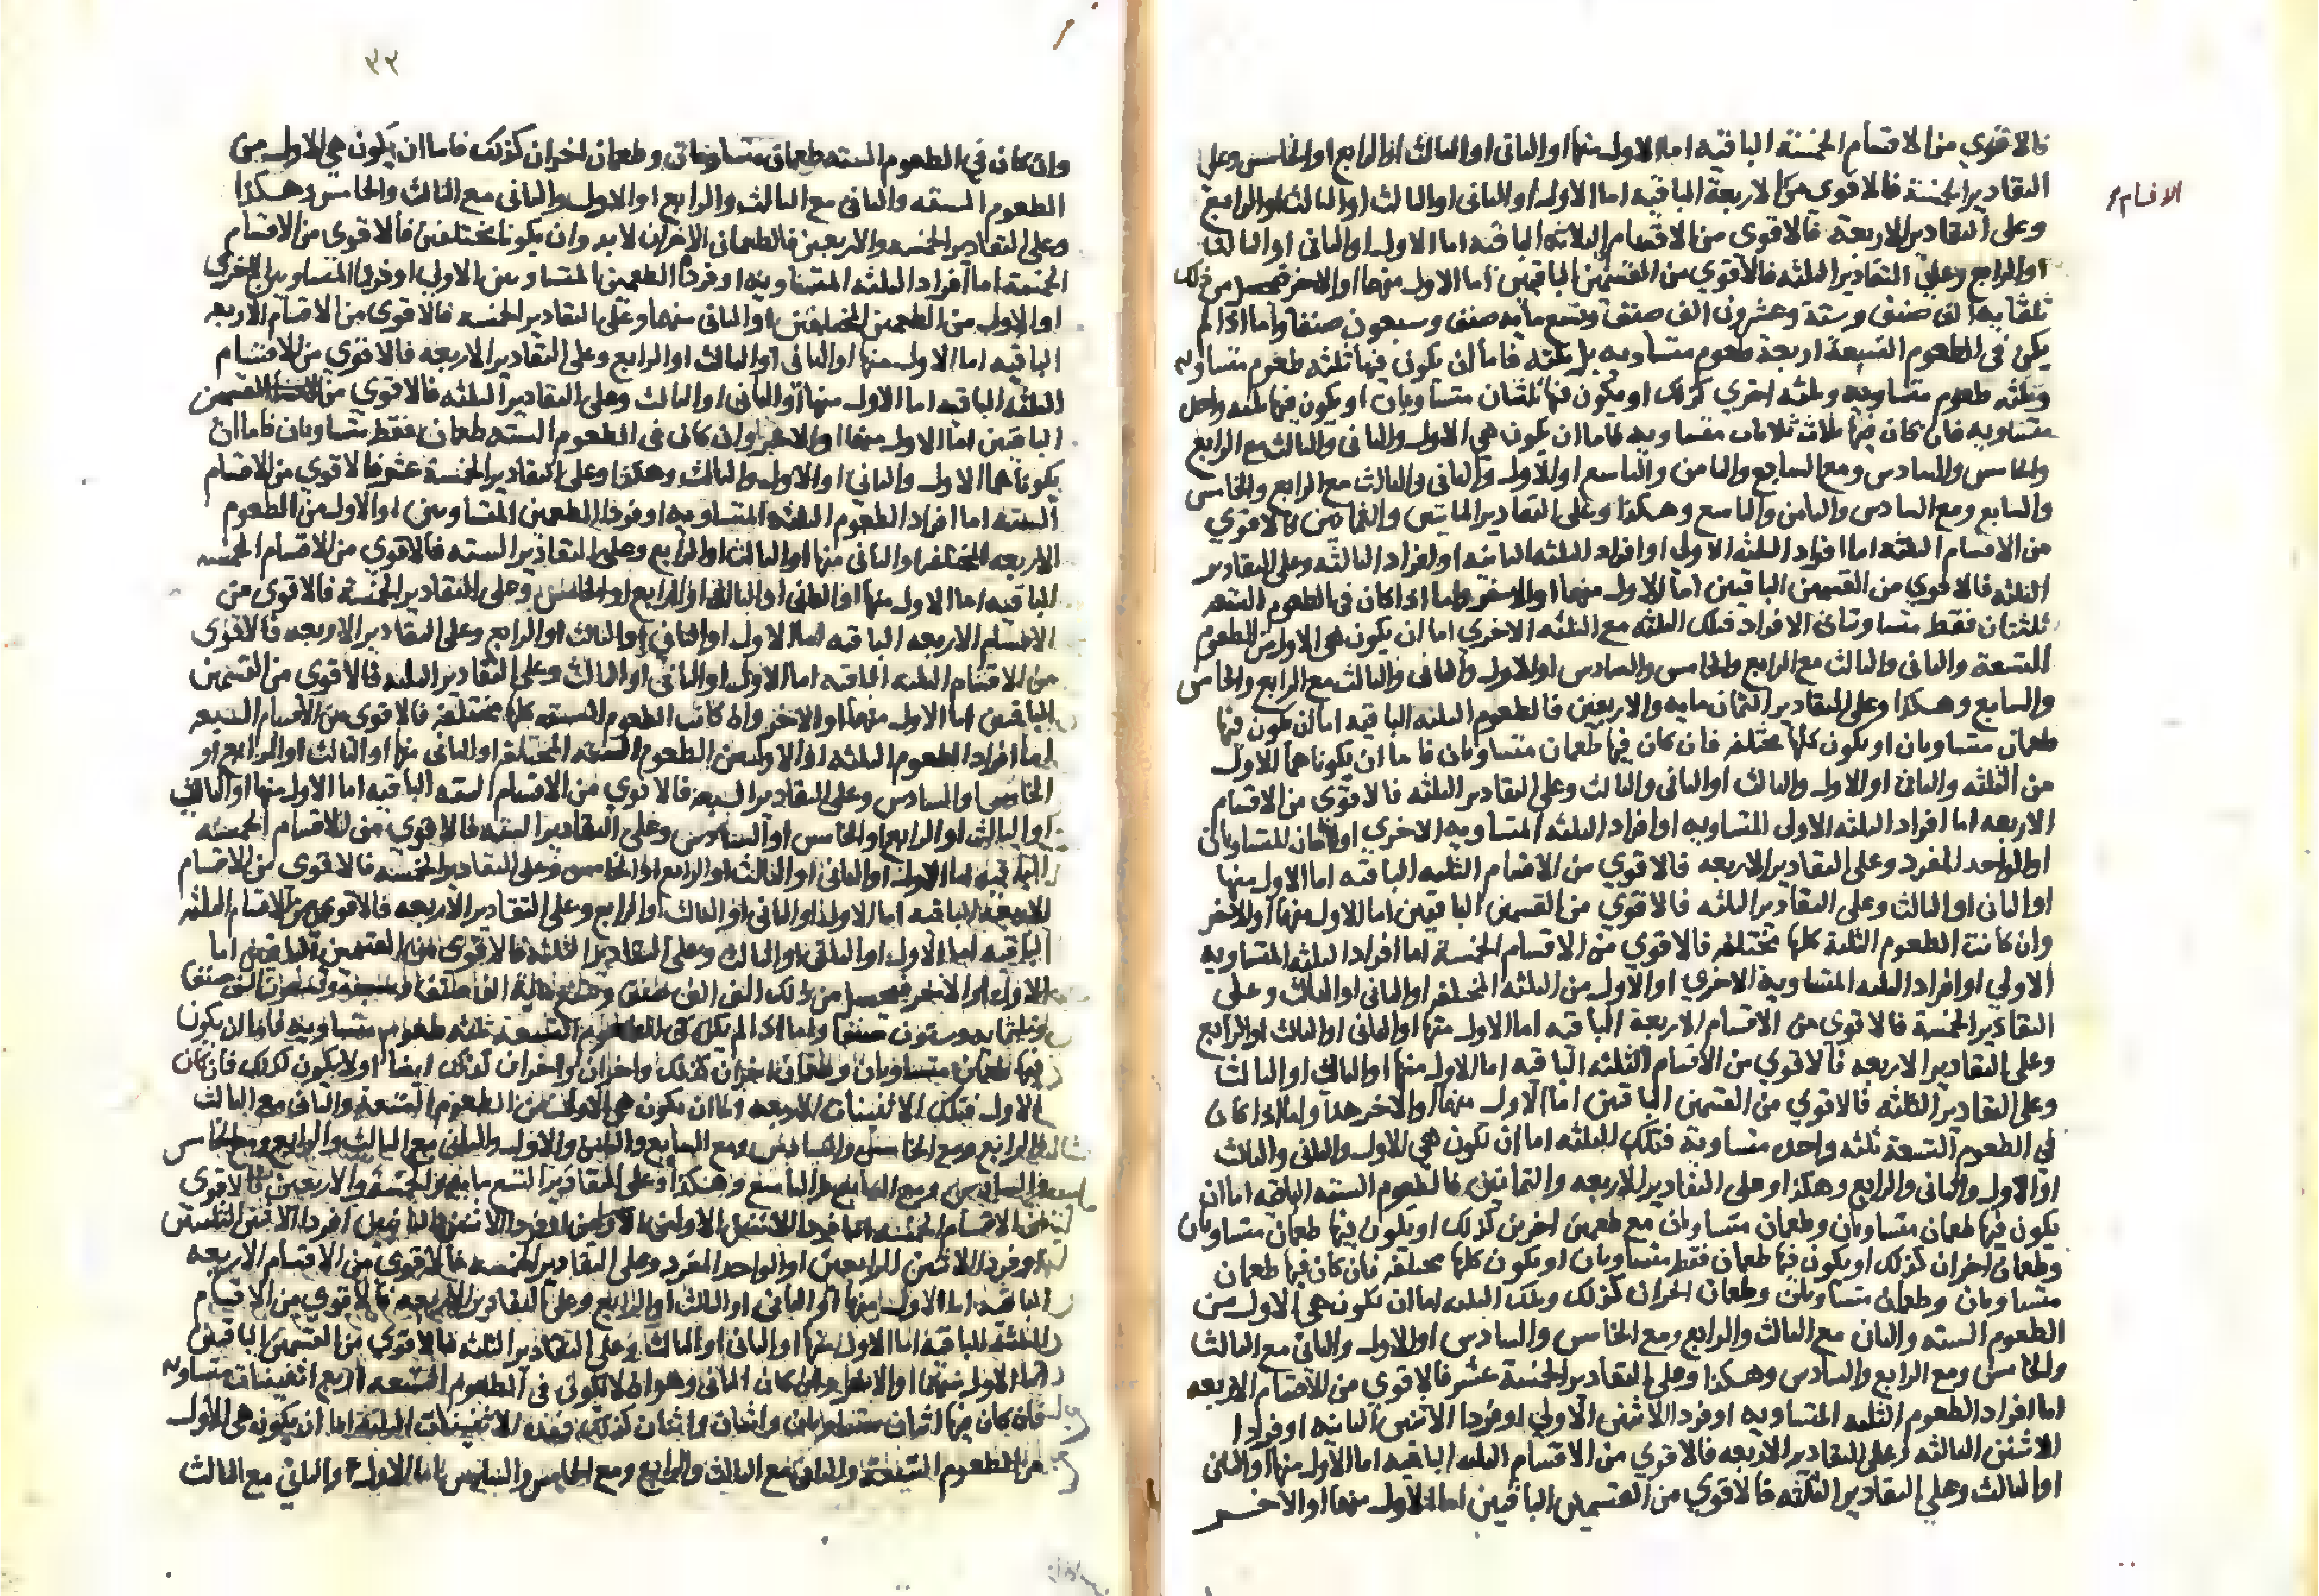 فالاقوي من الاقسام الخمسة الباقيه اما الاول منها او الثانى او الثالث او الرابع او الخامس وعلى
التقادير الخمسة فالاقوى من الاربعة الباقيه اما الاول او الثانى او الثالث او الرابع
الاقسام
وعلى التقادير الاربعة فالاقوى من الاقسام الثلاثه الباقيه اما الاول او الثانى او الثالث
او الرابع وعلى التقادير الثلثه فالاقوي من القسمين الباقيين اما الاول منهما او الاخر فحصل من ذلك
ثلثمايه الف صنف وستة وعشرون الف صنف وتسع مايه صنف وسبعون صنفا واما اذا لم
يكن فى الطعوم التسعة اربعة طعوم متساويه بل ثلثه فاما ان يكون فيها ثلثه طعوم متساويه
وثلثه طعوم متساويه وثلثه اخري كذلك او يكون فيها ثلثتان متساويتان او يكون فيها ثلثه واحد
متساويه فان كان فيها ثلاث ثلاثات متساويه فاما ان يكون هي الاول والثانى والثالث مع الرابع
والخامس والسادس ومع السابع والثامن والتاسع او الاول والثانى والثالث مع الرابع والخامس
والسابع ومع السادس والثامن والتاسع وهكذا وعلى التقادير المايتين والثمانين فالاقوي
من الاقسام الثلثه اما افراد الثلثه الاولى او افراد الثلثه الثانيه او افراد الثالثه وعلى التقادير
الثلثه فالاقوي من القسمين الباقيين اما الاول منهما او الاخر واما اذا كان فى الطعوم التسعه
ثلثتان فقط متساويتان الافراد فتلك الثلثه مع الثلثه الاخري اما ان يكون هى الاول من الطعوم
التسعة والثانى والثالث مع الرابع والخامس والسادس او الاول والثانى والثالث مع الرابع والخامس
والسابع وهكذا وعلى التقادير الثمان مايه والاربعين فالطعوم الثلثه الباقيه اما ان يكون فيها
طعمان متساويان او يكون كلها مختلفه فان كان فيها طعمان متساويان فاما ان يكونا هما الاول
من الثلثه والثانى او الاول والثالث او الثانى والثالث وعلى التقادير الثلثه فالاقوى من الاقسام
الاربعه اما افراد الثلثه الاولى المتساويه او افراد الثلثه المتساويه الاخري او الاثنان المتساويان
او الواحد المفرد وعلى التقادير الاربعه فالاقوي من الاقسام الثلثه الباقيه اما الاول منها
او الثانى او الثالث وعلى التقادير الثلثه فالاقوي من القسمين الباقيين اما الاول منهما او الاخر
وان كانت الطعوم الثلثة كلها مختلفه فالاقوي من الاقسام الخمسة اما افراد الثلثه المتساويه
الاولي او افراد الثلثه المتساوية الاخري او الاول من الثلثه المختلفه او الثانى او الثالث وعلى
التقادير الخمسة فالاقوي من الاقسام الاربعة الباقيه اما الاول منها او الثانى او الثالث او الرابع
وعلى التقادير الاربعه فالاقوي من الاقسام الثلثه الباقيه اما الاول منها او الثانى او الثالث
وعلى التقادير الثلثه فالاقوي من القسمين الباقيين اما الاول منهما او الاخر هذا واما اذا كان
في الطعوم التسعة ثلثه واحده متساوية فتلك الثلثه اما ان يكون هي الاول والثانى والثالث
او الاول والثانى والرابع وهكذا وعلى التقادير الاربعه والثمانين فالطعوم الستة الباقيه اما ان
يكون فيها طعمان متساويان وطعمان متساويان مع طعمين اخرين كذلك او يكون فيها طعمان متساويان
وطعمان اخران كذلك او يكون فيها طعمان فقط متساويان او يكون كلها مختلفه فان كان فيها طعمان
متساويان وطعمان متساويان وطعمان اخران كذلك وتلك الثلثه اما ان يكون هى الاول من
الطعوم الستة والثانى مع الثالث والرابع ومع الخامس والسادس او الاول والثانى مع الثالث
والخامس ومع الرابع والسادس وهكذا وعلى التقادير الخمسة عشر فالاقوي من الاقسام الاربعه
اما افراد الطعوم الثلثه المتساويه او فردا الاثنين الاولى او فردا الاثنين الثانيه او فردا
الاثنين الثالثه وعلى التقادير الاربعه فالاقوي من الاقسام الثلثه الباقيه اما الاول منها او الثانى
او الثالث وعلى التقادير الثلثه فالاقوي من القسمين الباقيين اما الاول منهما او الاخر
٣٣
وان كان فى الطعوم الستة طعمان متساويان وطعمان اخران كذلك فاما ان يكون هي الاول من
الطعوم الستة والثانى مع الثالث والرابع او الاول والثانى مع الثالث والخامس وهكذا
وعلى التقادير الخمسه والاربعين فالطعمان الاخران لابد وان يكونا مختلفين فالاقوى من الاقسام
الخمسة اما افراد الثلثه المتساويه او فردا الطعمين المتساويين الاولى او فردا المتساويين الاخرى
او الاول من الطعمين المختلفين او الثانى منهما وعلى التقادير الخمسه فالاقوى من الاقسام الاربعه
الباقيه اما الاول منها او الثانى او الثالث او الرابع وعلى التقادير الاربعه فالاقوي من الاقسام
الثلثه الباقيه اما الاول منها او الثانى او الثالث وعلى التقادير الثلثه فالاقوي من القسمين
الباقيين اما الاول منهما او الاخر وان كان فى الطعوم الستة طعمان فقط متساويان فاما ان
يكونا هما الاول والثانى او الاول والثالث وهكذا وعلى التقادير الخمسة عشر فالاقوي من الاقسام
الستة اما افراد الطعوم الثلثه المتساويه او فردا الطعمين المتساويين او الاول من الطعوم
الاربعه المختلفه او الثانى منها او الثالث او الرابع وعلى التقادير الستة فالاقوي من الاقسام الخمسه
الباقيه اما الاول منها او الثانى او الثالث او الرابع او الخامس وعلى التقادير الخمسة فالاقوى من
الاقسام الاربعه الباقيه اما الاول او الثانى او الثالث او الرابع وعلى التقادير الاربعه فالاقوى
من الاقسام الثلثه الباقيه اما الاول او الثانى او الثالث وعلى التقادير الثلثه فالاقوي من القسمين
الباقيين اما الاول منهما او الاخر وان كانت الطعوم الستة كلها مختلفه فالاقوى من الاقسام السبعه
اما افراد الطعوم الثلثه او الاول من الطعوم الستة المختلفه او الثانى منها او الثالث او الرابع او
الخامس او السادس وعلى التقادير السبعه فالاقوي من الاقسام الستة الباقيه اما الاول منها او الثانى
او الثالث او الرابع او الخامس او السادس وعلى التقادير الستة فالاقوي من الاقسام الخمسه
الباقيه اما الاول او الثانى او الثالث او الرابع او الخامس وعلى التقادير الخمسة فالاقوى من الاقسام
الاربعة الباقيه اما الاول او الثانى او الثالث او الرابع وعلى التقادير الاربعه فالاقوي من الاقسام الثلثه
الباقيه اما الاول او الثانى او الثالث وعلى التقادير الثلثه فالاقوى من القسمين الباقيين اما
الاول او الاخر فحصل من ذلك الف الف صنف الف صنفا
وثلثمايه وستون صنفا واما اذا لم يكن فى الطعوم التسعة ثلثه طعوم متساويه فاما ان يكون
فيها طعمان متساويان وطعمان اخران كذلك واخران واخران كذلك ايضا او لا يكون كذلك فان كان
الاول فتلك الاثنينات الاربعه اما ان يكون هى الاول من الطعوم التسعة والثانى مع الثالث
والرابع ومع الخامس والسادس ومع السابع والثامن او الاول والثانى مع الثالث والرابع ومع الخامس
والسادس ومع السابع والتاسع وهكذا وعلى التقادير التسع مايه والخمسة والاربعين فالاقوى
من الاقسام الخمسه اما فردا الاثنين الاولين او فردا الاثنين الثانيين او فردا الاثنين الثالثين
او فردا الاثنين الرابعين او الواحد المفرد وعلى التقادير الخمسه فالاقوى من الاقسام الاربعه
الباقيه اما الاول منها او الثانى او الثالث او الرابع وعلى التقادير الاربعه فالاقوي من الاقسام
الثلثة الباقيه اما الاول منها او الثانى او الثالث وعلى التقادير الثلثه فالاقوي من القسمين الباقيين
اما الاول منهما او الاخر وان كان الثانى وهو ان لا يكون فى الطعوم التسعه اربع اثنينات متساويه
فان كان فيها اثنان متساويان واثنان واثنان كذلك فهذه الاثنينات الثلثة اما ان يكون هى الاول
من الطعوم التسعة والثانى مع الثالث والرابع ومع الخامس والسادس واما الاول والثانى مع الثالث